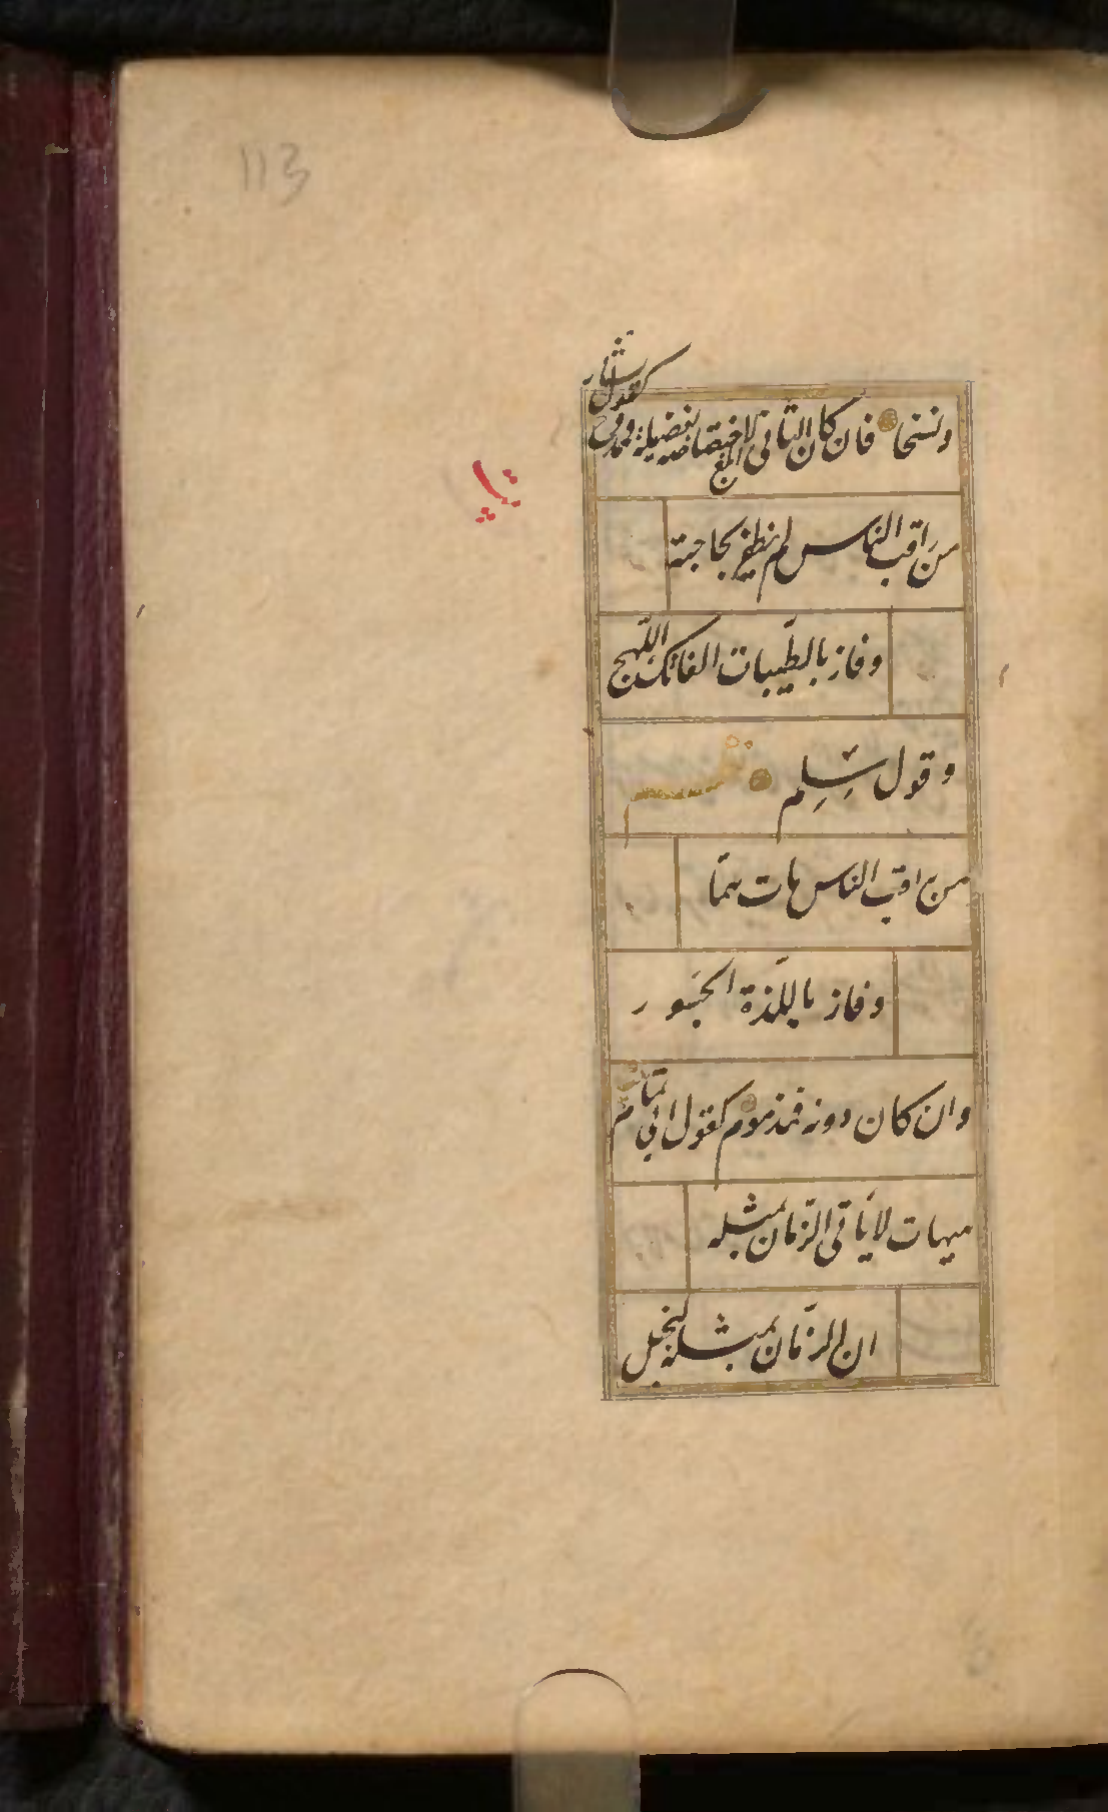 113
كقول بشار
ونسخا فان كان الثاني ابلغ لاختصاصه بفضيلة فممدوح
من راقب الناس لم يظفر بحاجته
وفاز بالطيّبات الفاتك اللّهج
وقول سَلِم نظم
من راقب الناس مات همّا
وفاز باللّذة الجَسور
وان كان دونه فمذموم كقول ابي تمّام
هيهات لا يَأتي الزّمان بمثله
ان الزّمان بمثله لبخيل